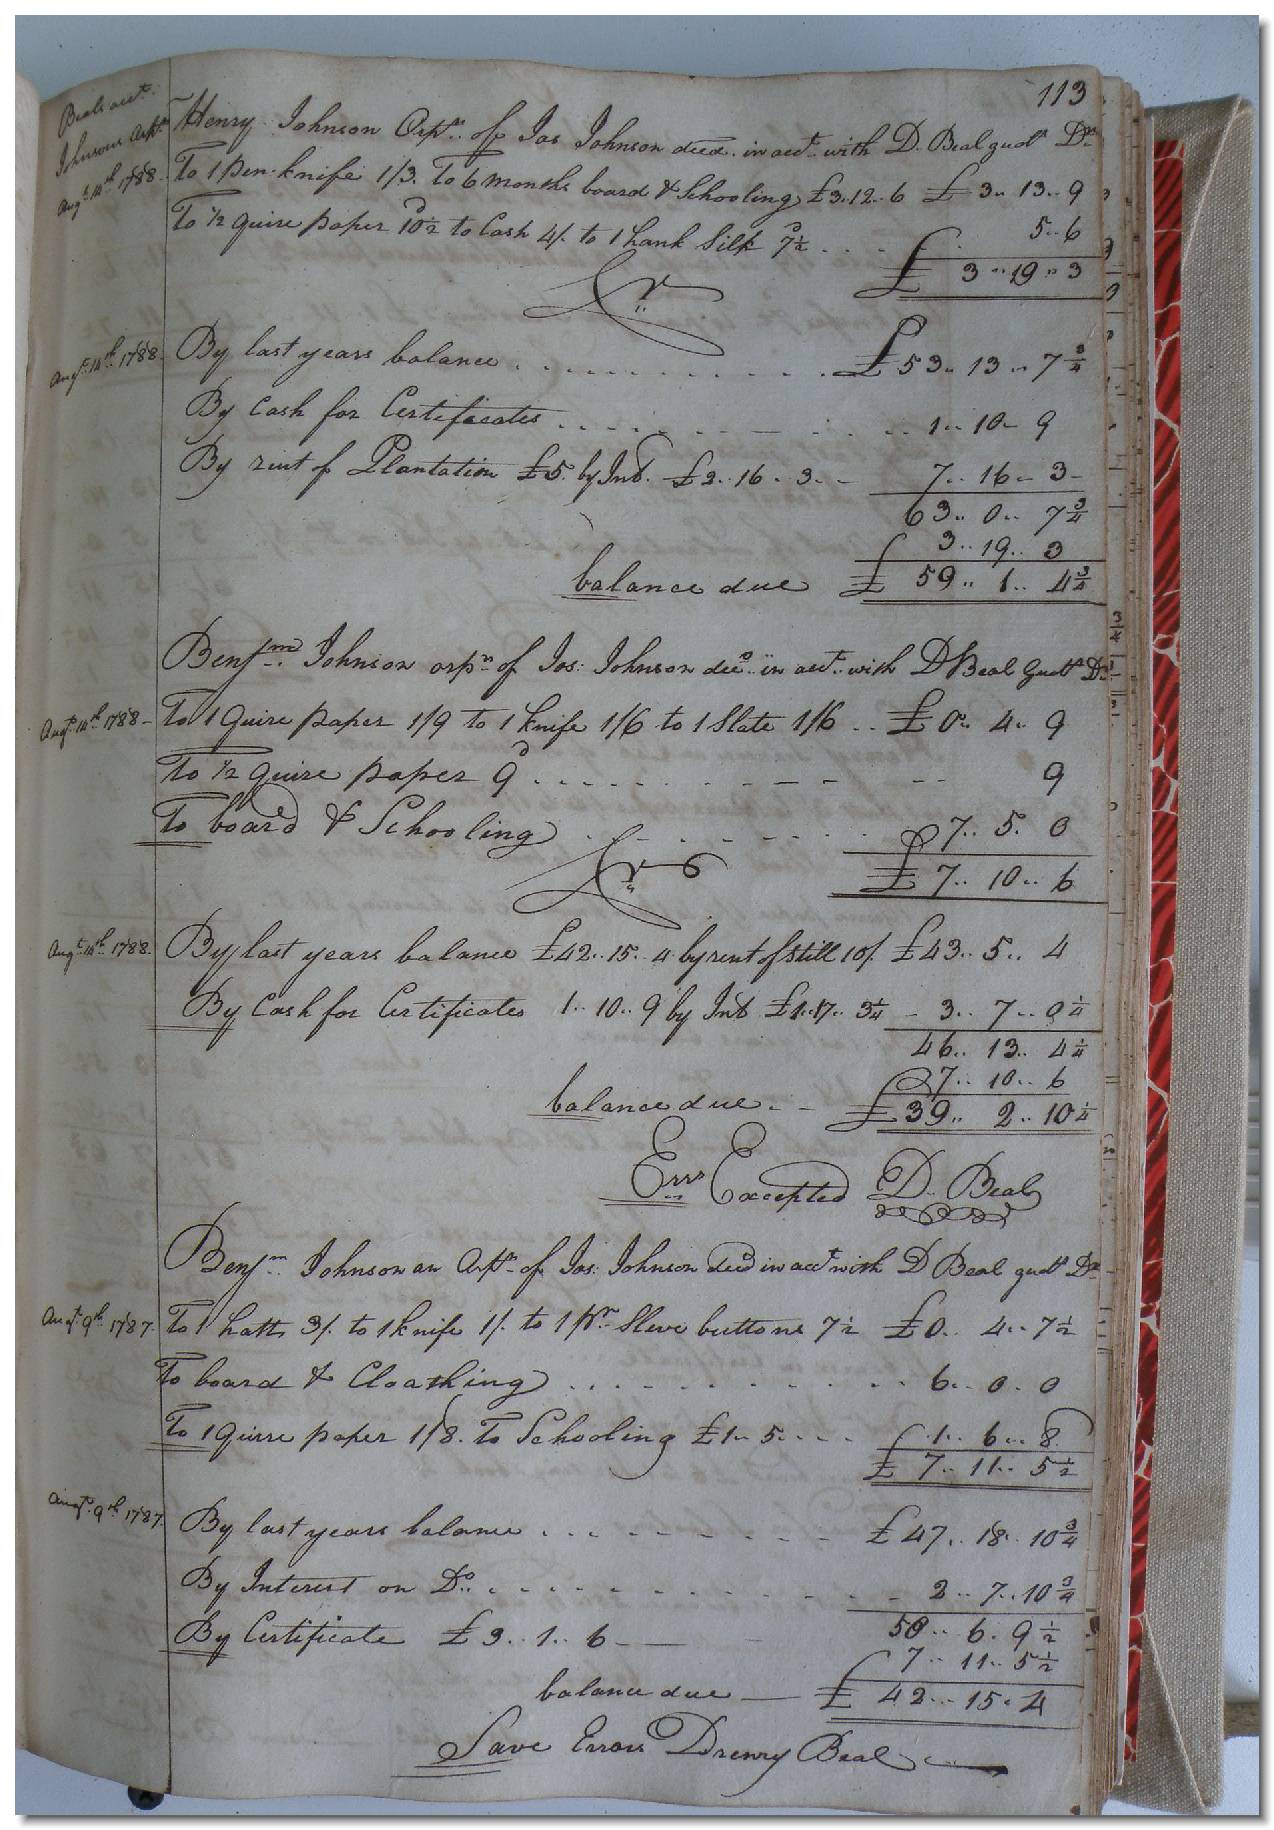 113
Beals acct.
Johnsons Orpn
Henry Johnson Orpn. of Jos Johnson deced. in acct. with D. Beal guadn Dr.
Augt. 14th 1788. To 1 pen-knife 1/3. To 6 months board & Schooling £3.12..6 £ 3.. 13.. 9
To 1/2 quire paper 10 1/2d to Cash 4/. to 1 hank Silk 7 1/2d .... 5..6
£ 3..19..3
Cr.
Augt. 14th 1788. By last years balance . . . . £53.. 13.. 7 3/4
By Cash for Certificates . . . . 1.. 10.. 9
By rent of Plantation £5. by Int. £2..16..3.. 7.. 16.. 3
63.. 0.. 7 3/4
3..19.. 3
balance due £ 59.. 1.. 4 3/4
Benjmn. Johnson orpn. of Jos: Johnson decd. in acct. with D Beal guadn Dr.
Augt. 14th 1788- To 1 Quire paper 1/9 to 1 knife 1/6 to 1 Slate 1/6 .. £0.. 4.. 9
To 1/2 quire paper 9d . . . . 9
To board & Schooling . . . . 7.. 5.. 0
£ 7.. 10.. 6
Cr.
Augt. 14th 1788. By last years balance £42..15..4 by rent of Still 10/. £43.. 5.. 4
By Cash for Certificates 1..10..9 by Int £1..17..3 1/4 - 3.. 7.. 0 1/4
46.. 13.. 4 1/4
7.. 10.. 6
balance due. - £39.. 2.. 10 1/4
Errs Excepted D. Beal
Benjm. Johnson an Orpn. of Jos: Johnson decd in acct with D Beal guadn Dr
Augt. 9th 1787. To 1 hatt 3/. to 1 knife 1/. to 1 pr. Sleve buttons 7 1/2 £0.. 4.. 7 1/2
To board & Cloathing . . . . 6.. 0.. 0
To 1 Quire paper 1/8. To Schooling £1.. 5.... 1.. 6.. 8
£ 7.. 11.. 5 1/2
Augt. 9th 1787. By last years balance . . . . £47.. 18.. 10 3/4
By Interest on Do. . . . . 2.. 7..10 3/4
By Certificate £3..1..6 - 50.. 6.. 9 1/2
7.. 11.. 5 1/2
balance due — £ 42.. 15.. 4
Save Errors Drewry Beal